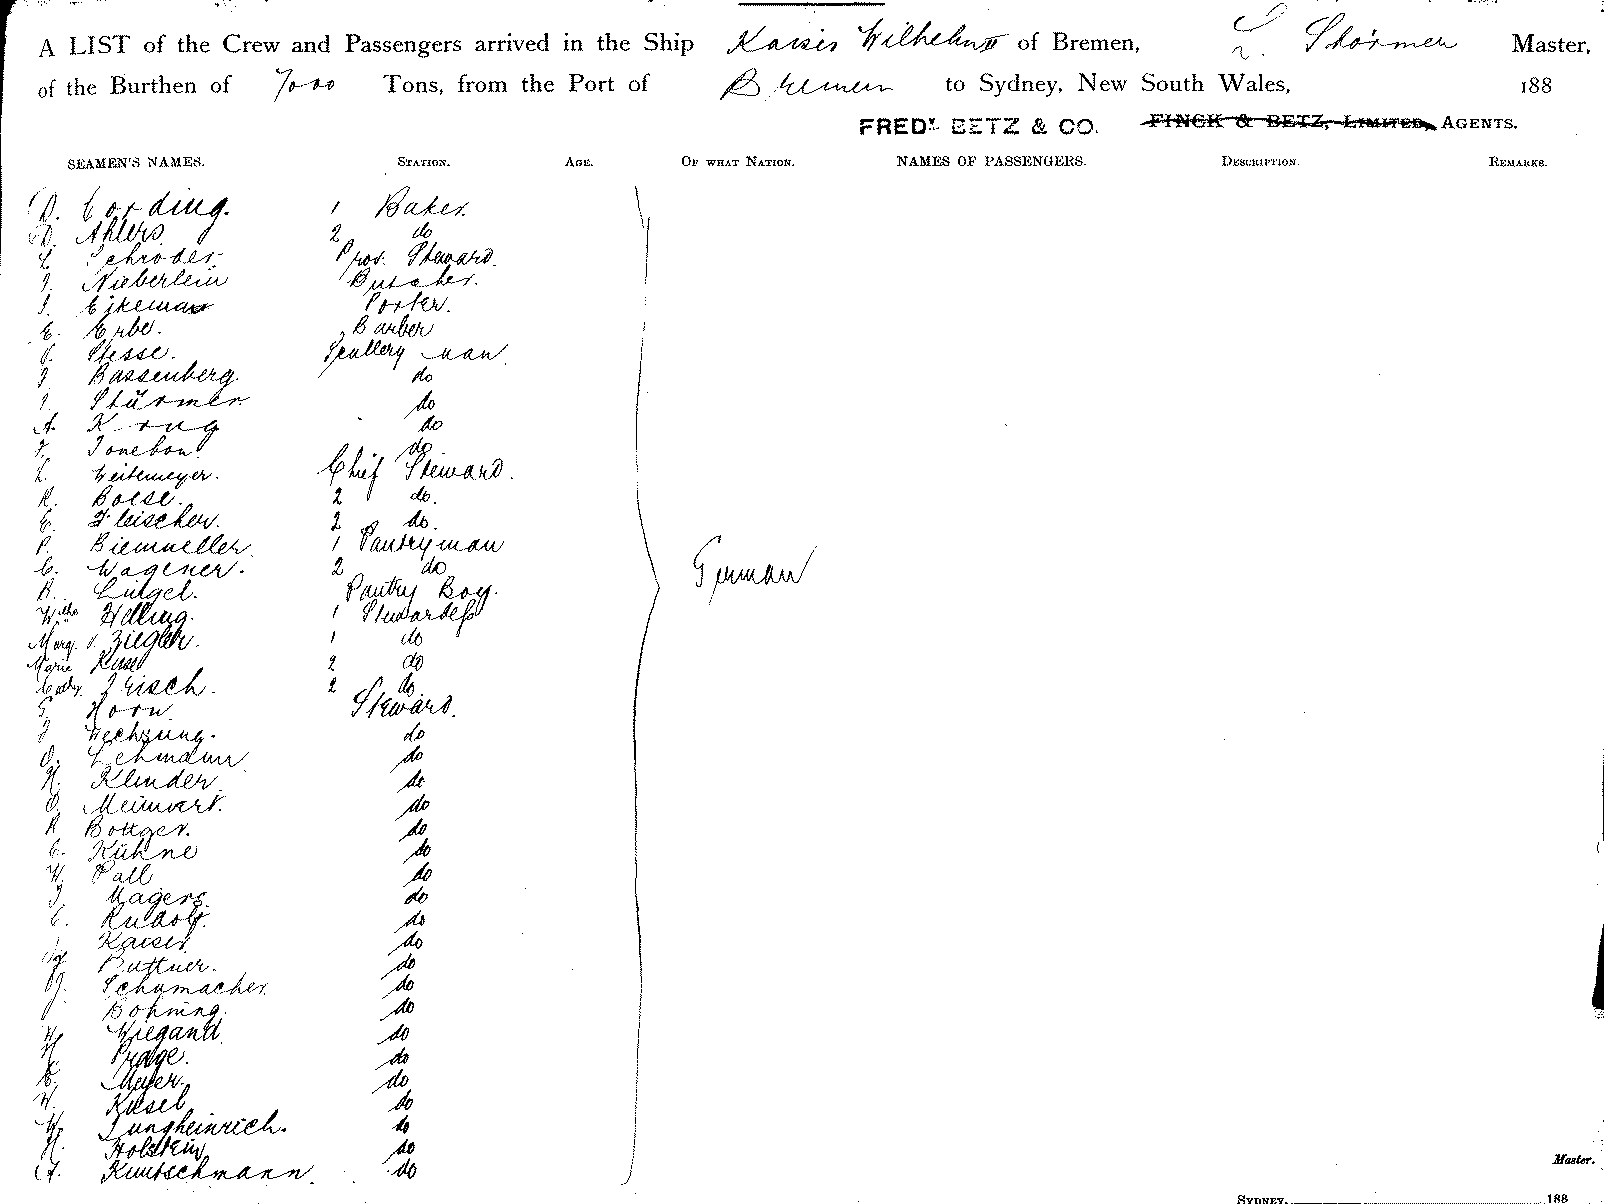 A LIST of the Crew and Passengers arrived in the Ship Kaiser Wilhelm II of Bremen, L. Störmer Master,
of the Burthen of 7000 Tons, from the Port of Bremen to Sydney, New South Wales, 188
FREDK. BETZ & CO. FINCK & BETZ, LIMITED, AGENTS.
SEAMEN'S NAMES. STATION. AGE. OF WHAT NATION. NAMES OF PASSENGERS. DESCRIPTION. REMARKS.
D. Cording. 1 Baker.
D. Ahlers. 2 do
Schroder. Prov. Steward.
Nieberlein Butcher.
Porter.
E. Erbe. Barber
Scullery man.
Bassenberg. do
Stürmer. do
A. Krug do
do
Weitemeyer. Chief Steward.
R. Boese. 2 do.
E. Fleischer. 2 do.
P. Biemueller. 1 Pantryman
C. Wagener. 2 do
R. Pantry Boy.
Helling. 1 Stewardess
Marg. v. Ziegler. 1 do
Marie 2 do
2 do
Horn. Steward.
Wechsung. do
O. Lehmann do
H. Klinder do
O. Meinvert. do
R Bottger. do
C. Kühne do
W. Pall do
Magers. do
C. Rudolf. do
Kaiser. do
Buttner. do
Schumacher. do
Bohning. do
W. Wiegand. do
H. Prage. do
Meyer. do
W. do
W. Jungheinrich. do
H. Holstein do
do
German
Master.
SYDNEY, 188